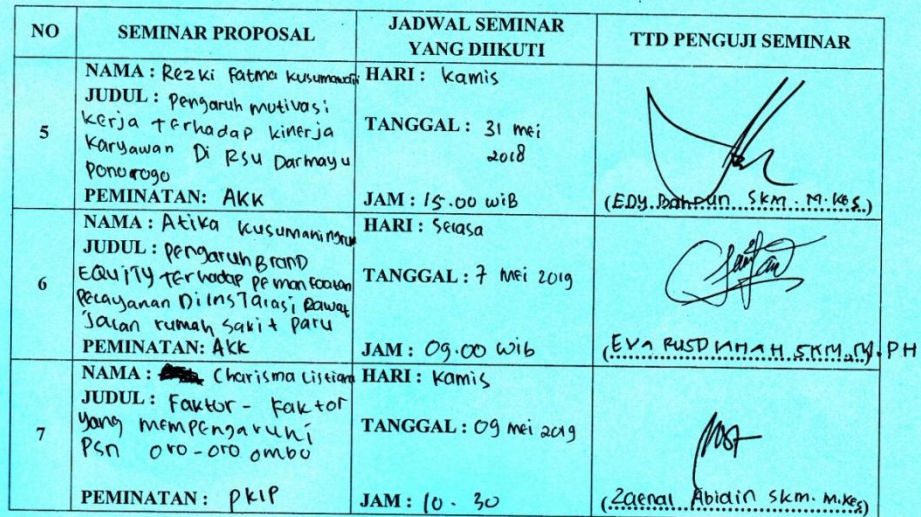 NO SEMINAR PROPOSAL JADWAL SEMINAR YANG DIIKUTI TTD PENGUJI SEMINAR
5
NAMA : Rezki Fatma Kusumawati
JUDUL : Pengaruh motivasi
kerja terhadap kinerja
Karyawan Di RSU Darmayu
Ponorogo
PEMINATAN: AKK
HARI : Kamis
TANGGAL : 31 mei
2018
JAM : 15.00 WIB
(EDY Bahrun SKM. M.Kes)
6
NAMA : Atika Kusumaningrum
JUDUL : Pengaruh BRAND
EQUITY Terhadap Pemanfaatan
Pelayanan Di Instalasi Rawat
Jalan rumah sakit Paru
PEMINATAN: AKK
HARI : Selasa
TANGGAL : 7 Mei 2019
JAM : 09.00 Wib
(EVA RUSDIANAH SKM., M.PH
7
NAMA : Charisma Listiana
JUDUL : Faktor - Faktor
yang mempengaruhi
PSN oro-oro ombo
PEMINATAN : PKIP
HARI : Kamis
TANGGAL : 09 mei 2019
JAM : 10.30
(Zaenal Abidin SKM. M.Kes)